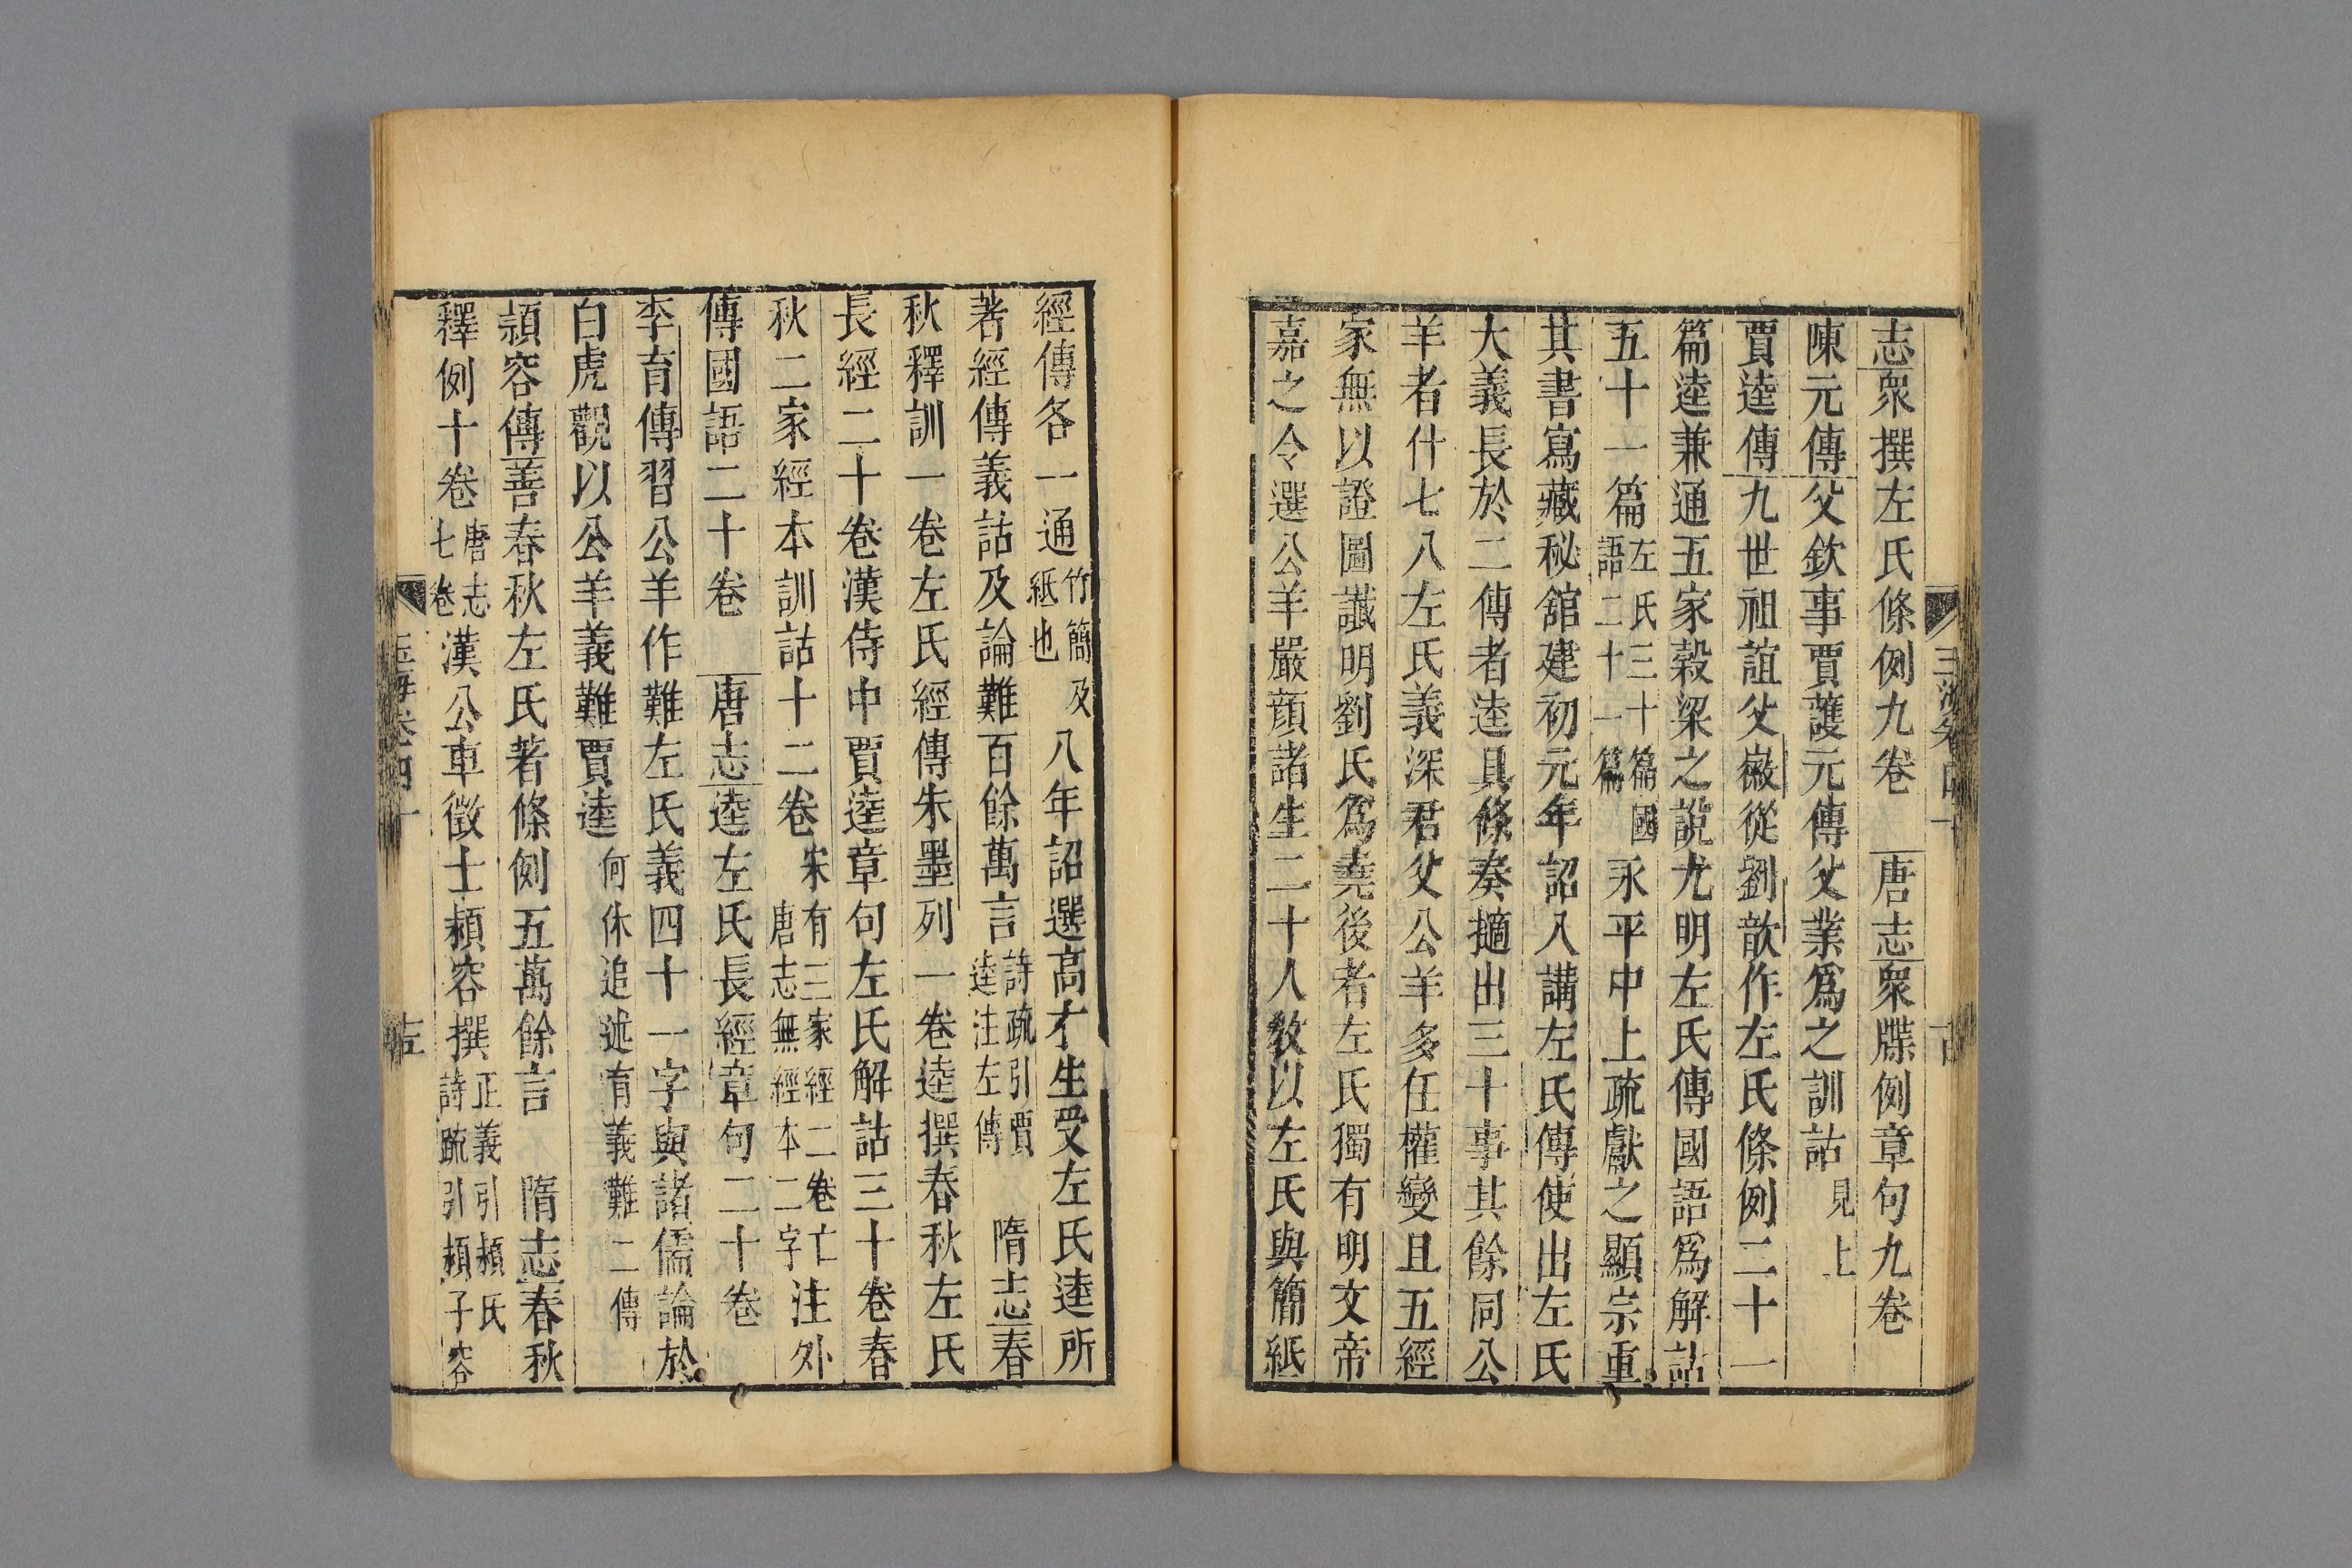 志衆撰左氏條例九卷　唐志衆牒例章句九卷
陳元傳父欽事賈護元傳父業爲之訓詁見上
賈逵傳九世祖誼父徽從劉歆作左氏條例二十一
篇逵兼通五家穀梁之說尤明左氏傳國語爲解詁
五十一篇左氏三十篇國語二十一篇永平中上疏獻之顯宗重
其書寫藏秘舘建初元年詔入講左氏傳使出左氏
大義長於二傳者逵具條奏擿出三十事其餘同公
羊者什七八左氏義深君父公羊多任權變且五經
家無以證圖讖明劉氏爲堯後者左氏獨有明文帝
嘉之令選公羊嚴顔諸生二十人敎以左氏與簡紙
經傳各一通竹簡及紙也八年詔選高才生受左氏逵所
著經傳義詁及論難百餘萬言詩疏引賈逵注左傳　隋志春
秋釋訓一卷左氏經傳朱墨列一卷逵撰春秋左氏
長經二十卷漢侍中賈逵章句左氏解詁三十卷春
秋二家經本訓詁十二卷宋有三家經二卷亡唐志無經本二字注外
傳國語二十卷　唐志逵左氏長經章句二十卷
李育傳習公羊作難左氏義四十一字與諸儒論於
白虎觀以公羊義難賈逵何休追述育義難二傳
頴容傳善春秋左氏著條例五萬餘言　隋志春秋
釋例十卷唐志七卷漢公車徵士頴容撰正義引頴氏詩疏引頴子容
玉海卷四十